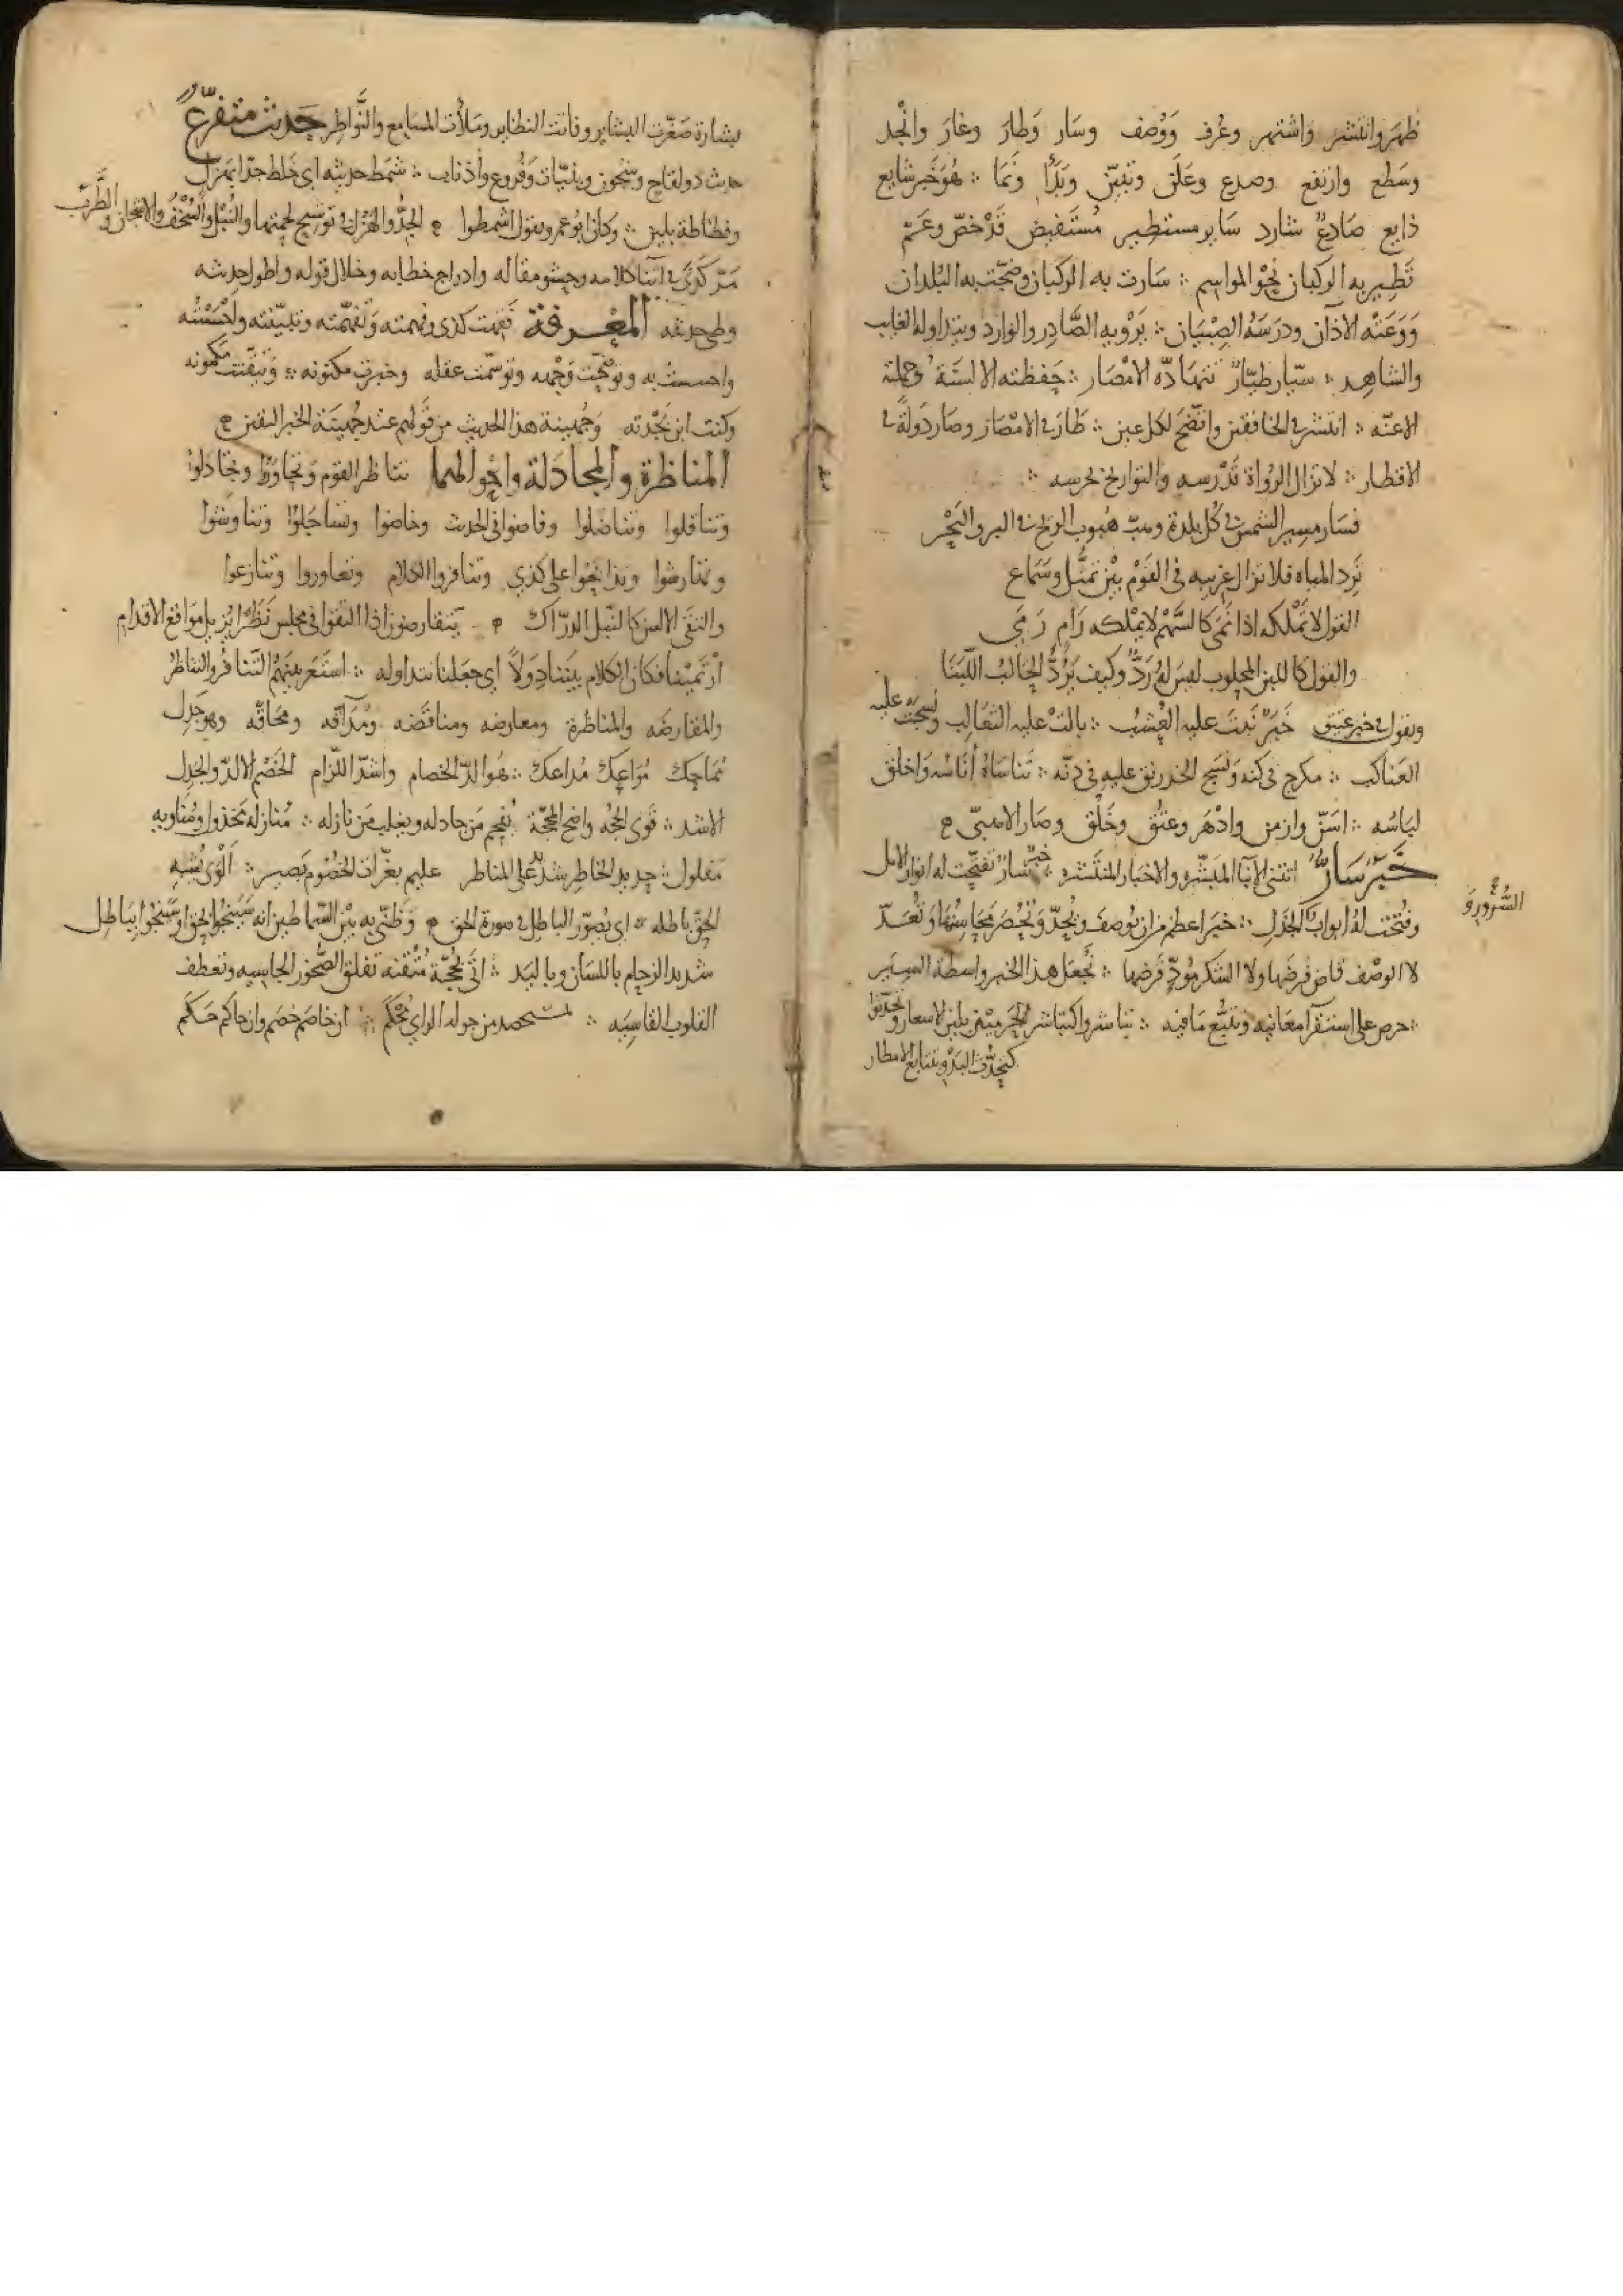 ظهر وانتشر واشتهر وعُرف وَوُصف وسَار وَطارَ وغارَ وانْجد
وسَطع وارتفع وصدع وعَلَن وتبيّن وبَدَأ ونَمَا ؞ هُوَ خَبر شايع
ذايع صَادِعٌ شارد سَاير مستطير مُستَفيض قَدْ خصّ وعَمّ
تَطير به الركبان نحْوَ المواسِم ؞ سَارت به الركبان وضجّت به البُلدان
وَوَعَتْه الآذان ودرَسَهُ الصِبْيَان ؞ يَرْويه الصَّادِر والوَارد ويتداوله الغايب
والشاهِد ؞ سيّار طيّارٌ تتهَادّه الامْصَار ؞ حَفظته الالسنَة وحملته
الاعنّه ؞ انتشر في الخافقين واتّضحَ لكل عين ؞ طَارَ في الامْصَار وصَار دَولةً في
الاقطار ؞ لا تزال الرُوَاة تَدْرسه والتواريخ تحرسه ؞
فسَار مسير الشمس في كُل بلدة وهبّ هُبوب الريح في البر والبَحْر
تَرِد المياه فلا تزال غريبه في القَوْم بيْن تمثُّل وسَمَاع
القول لا تَمْلكه اذا نَمى كالسَّهْم لا يملكه رَامٍ رَمَى
والقول كاللبن المحلوب ليسَ لهُ رَدٌّ وكيف يَرُدُّ الحَالبُ اللّبَنَا
وتقول في خبر عتيق خَبَرٌ نَبتَ عليه العُشبُ ؞ بالتْ عليه الثعَالب ونسجَت عليه
العَناكب ؞ مدرج في كفنه وَنسَج الخدرنق عليه في دنّه ؞ تَناسَاهُ أنَاسُه وَاخلق
لبَاسُه ؞ اسَنّ وازمن وادْهَر وعتُق وخَلُق وصَار الامبىّ
خَبَر سَارٌّ اتتنى الانبا المبَشّره والاخبار المنتَشره ؞ خبر سَارٌّ تفتّحت له انوار الامل
السُّرُور وَ
وفُتّحت لهُ ابواب الجَذَل ؞ خبَر اعظم من ان يُوصفَ ويُحدّ وَتُحصرَ محَاسِنُها وَتُعَدّ
لا الوصْف قاض فرضَها ولا الشكر مُودّ قَرضها ؞ نجْعَل هذا الخبر واسطة السِيَر
؞ حرص على استقرآ معَانيه وتتبُّع مَا فيه ؞ تباشروا كتباشر الحَرميْن بلين الاسعار وتحدّثوا
كتحدُّث البَدْو بتتابع الامطار
بشارة صَغّرت البشاير وفاتت النظاير ومَلأت المسَامع والنَّواظِر حَديث متفرّعٌ
حديث ذو لقاح وشجون وبنيّات وَفُروع وأذناب ؞ شمَط حديثه اى خَلط جدّا بهَزل
وفظاظة بلين ؞ وكان ابُو عمرو يقول اشمطوا الجِدُّ والهَزل في توشيح لحمتها والنُبْل والسُخْفُ والاشجان والطَّرَب
مَرّ كَذَى في اثنا كلامه وحشو مقاله وادراج خطابه وخلال قوله واطول حديثه
وطى حديثه المعْرفة فَهمت كذى وفهمته وَتَفهّمته وتبيّنته ولحَسْتُه
واحسست به وتوضّحت وَجْهه وتوسّمت عقله وخبرت مكنونه ؞ وَتبقّنت كمُونه
وكنت ابن بَجْدته وَجُهينة هذا الحديث من قَولهم عند جُهينَة الخبر اليقين
المناظرة والمجادَلة واحْوالهما تناظر القوم وتجَاوَزُا وتجَادَلوا
وتناقلوا وتناضلوا وفاضوا فى الحديث وخاضوا وتساجَلُوا وتناوشوا
وتمارسُوا وتدابحُوا على كذى وتنافزوا الكلام وتعاوروا وتنازعوا
والتقى الالسن كالنَبْل الدرّاك يتقارضون اذا التقوا فى مجلس نَظَرًا يُزيل مَوَاقع الاقدام
ارْتميْنا فكان الكلام بيننا دوَلاً اى جعَلنا نتداوله ؞ استَعَر بينهُمُ التَّنافُر والتناظُر
والمقارضه والمناظرة ومعارضه ومناقَضه ومُدَاقه ومحَاقّه وهو جَدِل
مُمَاحِك مُوَاعِك مُدَاعك ؞ هُوَ الدّ الخصام واشدّ اللزام الخَصْم الالدّ والجَدِل
الاشد ؞ قوى الحُجّه واضح المحجّة يُفحِم مَن جَادله ويغلب مَن نازله ؞ مُنازله مَخذول ومُنَاويه
مَفلول ؞ حديد الخاطِر شديد على المناظر عليم بغرّات الخصُوم بَصير ؞ ألوَى يُشبه
الحقّ باطله ؞ اى يُصوّر الباطل في صورة الحق وَظنّى به بيْن السّماطين انه سَينجُو بحقّ او سَينجُو ببَاطِل
شديد الزحام باللسَان وباليَد ؞ اتَى بحُجّة مُتْقنه تفلق الصُّخور الجاسيه وتعطف
القلوب القاسِيَه ؞ مستحصد من جوله الراي مُحْكَم ؞ ان خاصَم خصَم وان حاكم حَكَم